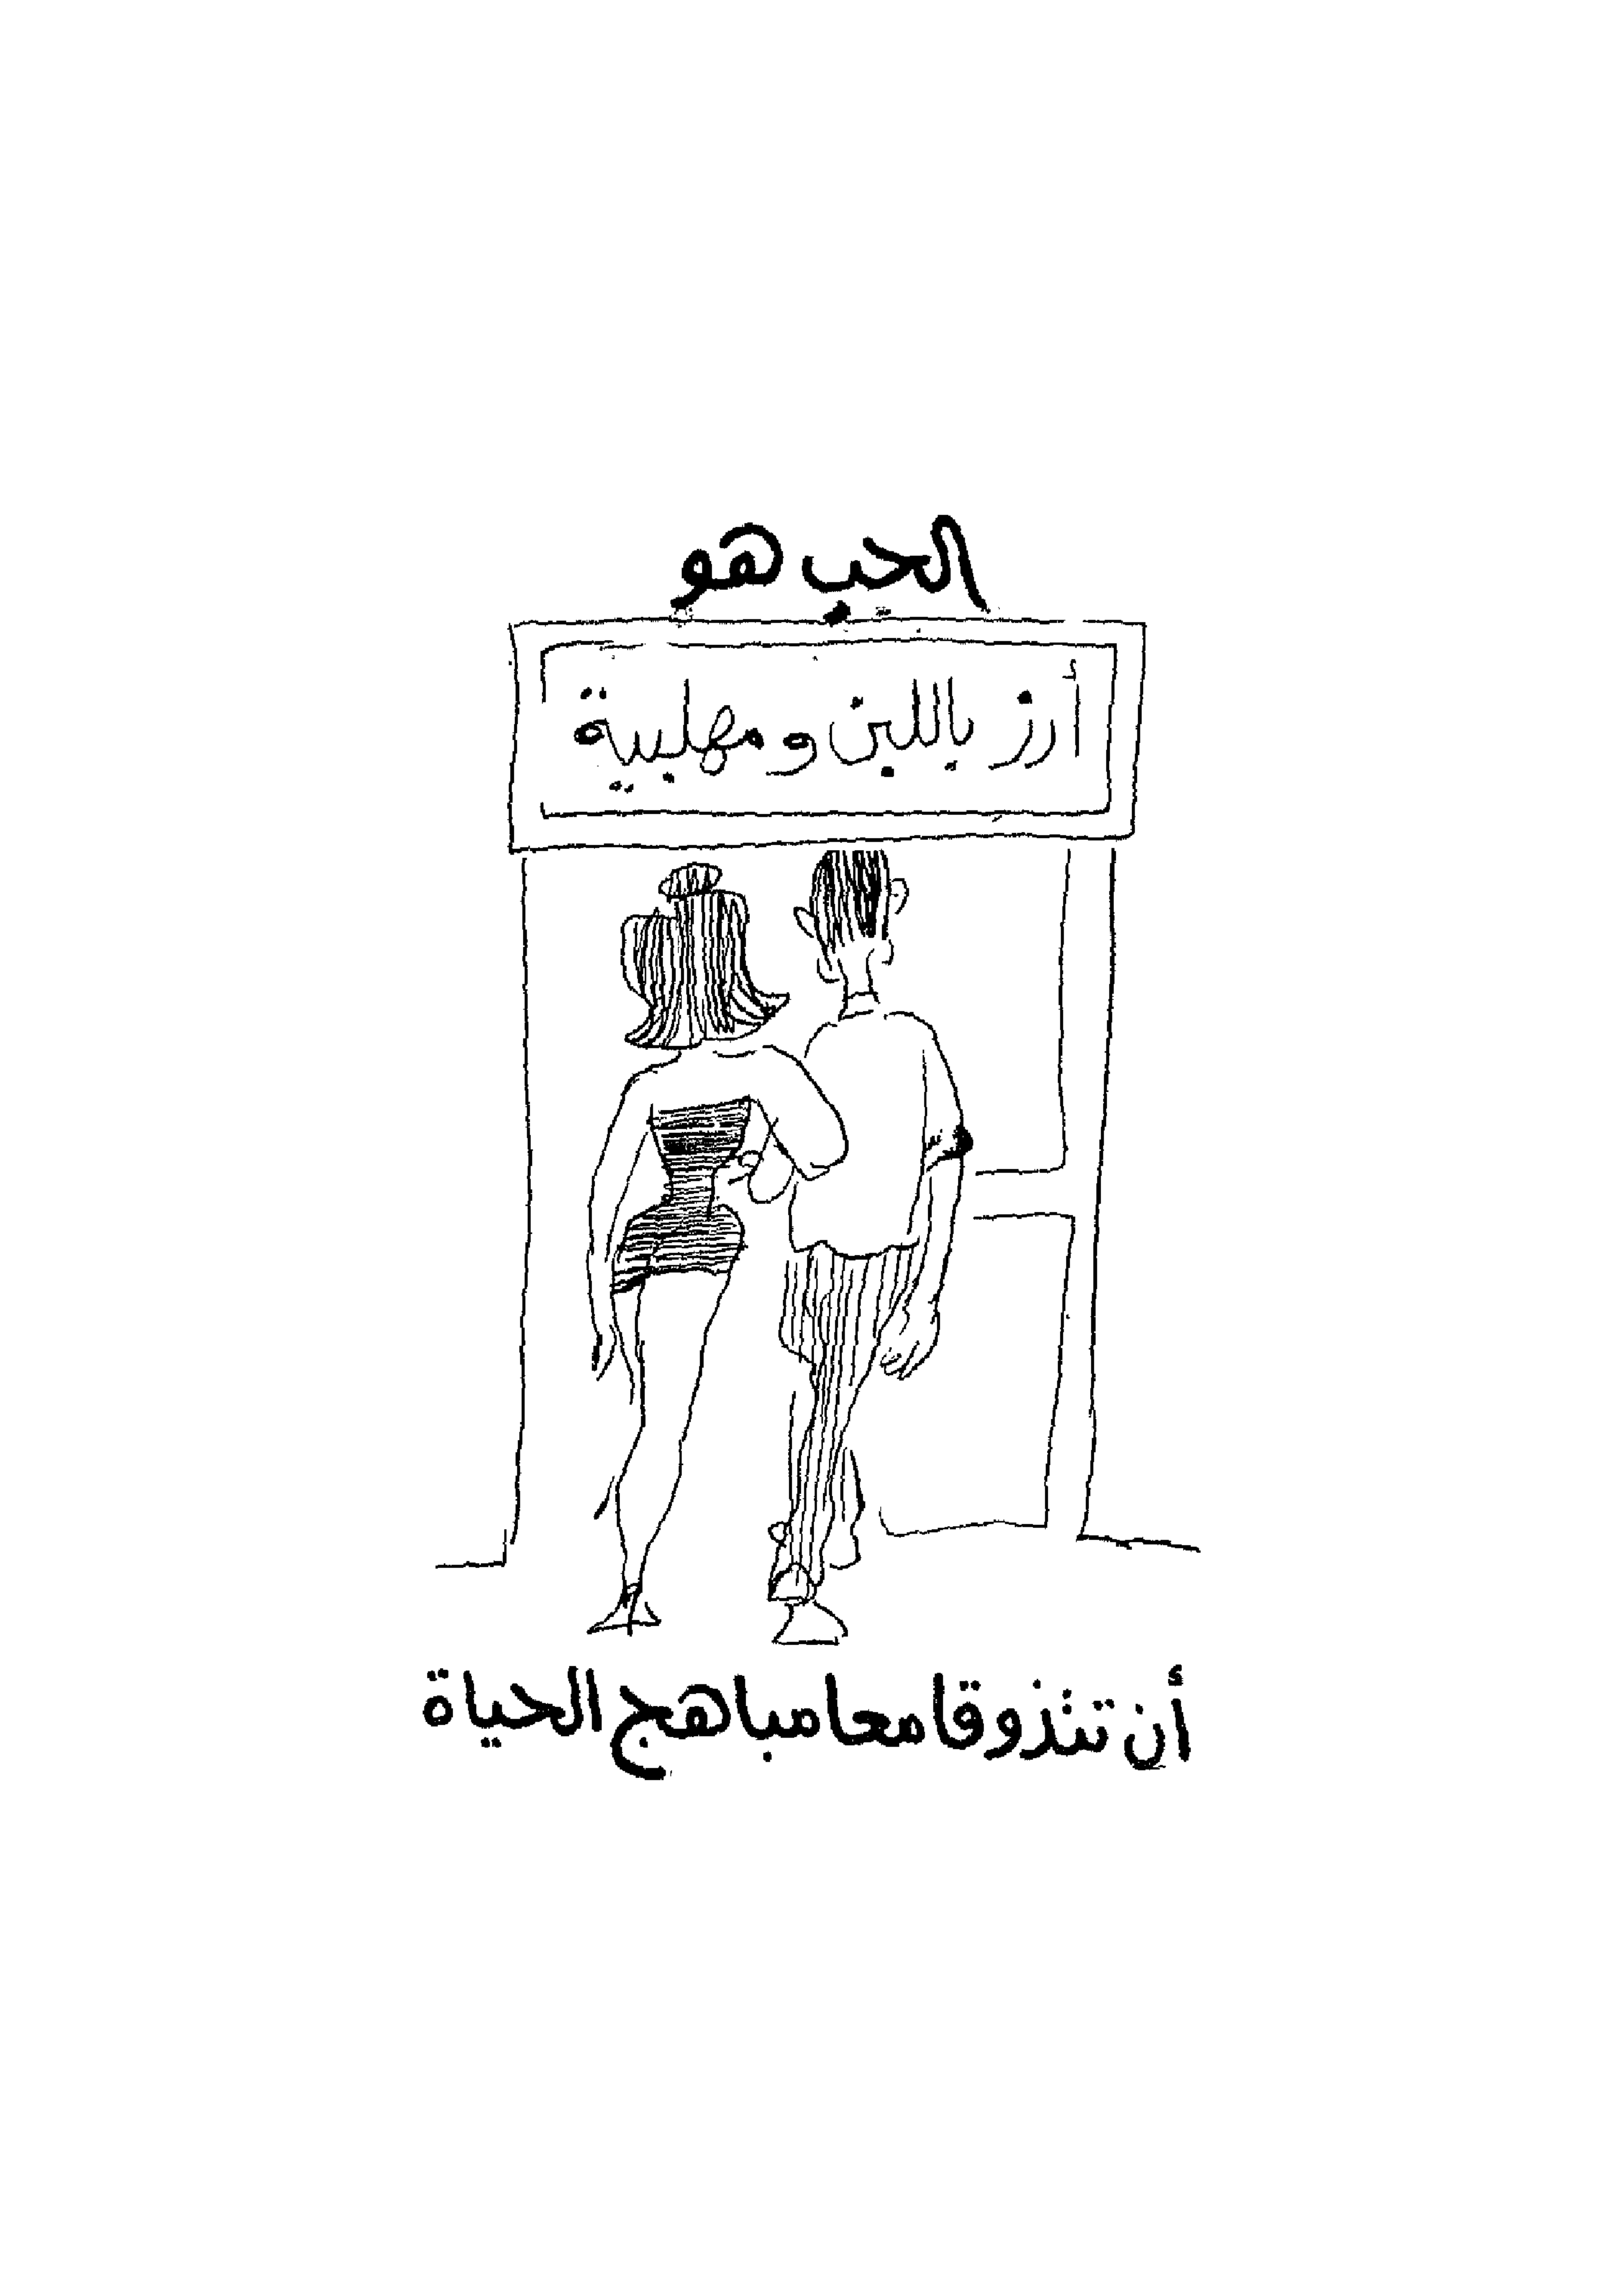 الحب هو
أرز باللبن ومهلبية
أن تتذوقا معا مباهج الحياة